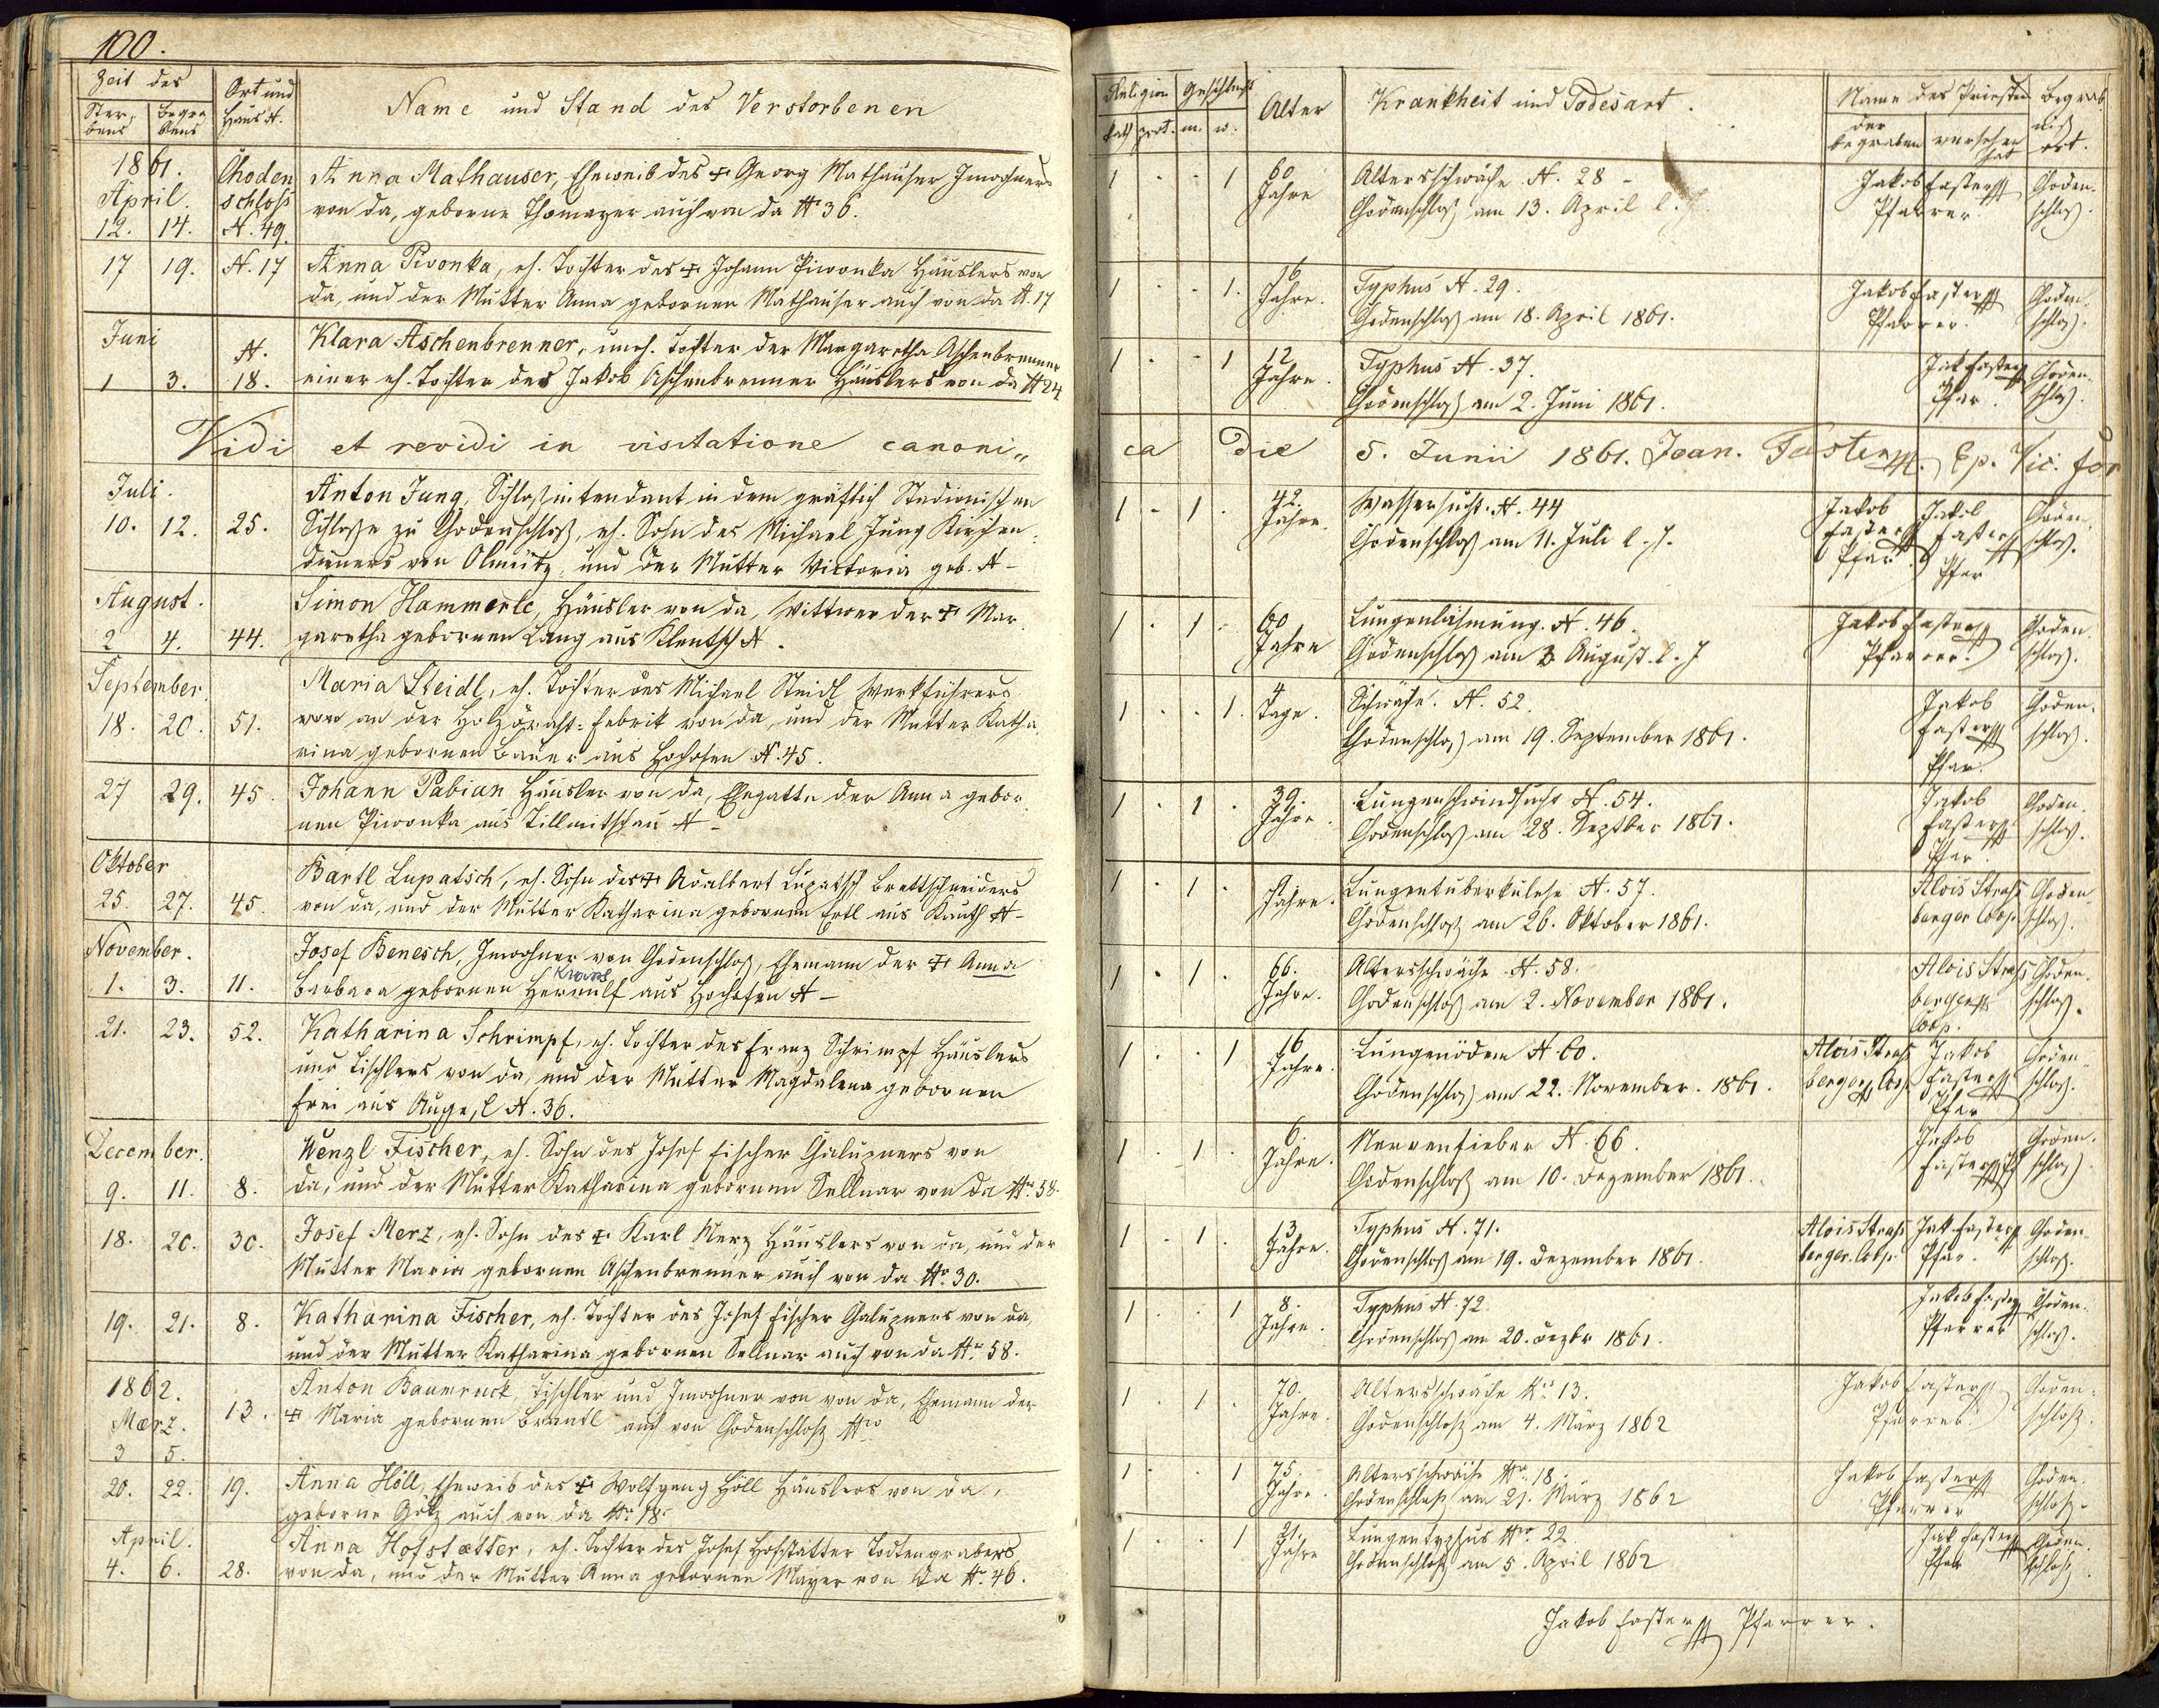 100.
Zeit des
Ster-
bens
Begra
bens
Ort und
Haus N.
Name und Stand des Verstorbenen
1861.
April.
12. 14.
Choden
schloß
N. 49.
Anna Mathauser, Eheweib des + Georg Mathauser Inwohners
von da, geborne Thomayer auch von da N. 36.
17 19. N. 17
Anna Pivonka, eh. Tochter des + Johann Piwonka Häuslers von
da, und der Mutter Anna gebornen Mathauser auch von da N. 17
Juni
1 3. N. 18.
Klara Aschenbrenner, uneh. Tochter der Margaretha Aschenbrenner
einer eh. Tochter des Jakob Aschenbrenner Häuslers von da N 24
Vidi et revidi in visitatione canoni„
Juli.
10. 12. 25.
Anton Jung, Schloßintendant in dem gräflich Stadionischen
Schloße zu Chodenschloß, eh. Sohn des Michael Jung Kirchen-
dieners von Olmütz, und der Mutter Victoria geb. N -
August.
2 4. 44.
Simon Hammerle, Häusler von da, Wittwer der + Mar
garetha gebornen Lang aus Klentsch N.
September.
18. 20. 51.
Maria Steidl, eh. Tochter des Michael Steidl Werkführers
von an der Holzdraht-Fabrik von da, und der Mutter Katha
rina gebornen Bauer aus Hochofen N. 45.
27 29. 45.
Johann Pabian Häusler von da, Ehegatte der Anna gebor
nen Piwonka aus Tillmitschau N -
Oktober
25. 27. 45.
Bartl Lupatsch, eh. Sohn des + Adalbert Lupatsch Brettschneiders
von da, und der Mutter Katharina gebornen Ertl aus Kauth N -
November.
1. 3. 11.
Josef Benesch, Inwohner von Chodenschloß, Ehemann der + Anna
Barbara gebornen aus Hochofen N -
21. 23. 52.
Katharina Schrimpf, eh. Tochter des Franz Schrimpf Häuslers
und Tischlers von da, und der Mutter Magdalena gebornen
Frei aus N. 36.
December.
9. 11. 8.
Wenzl Fischer, eh. Sohn des Josef Fischer Chalupners von
da, und der Mutter Katharina gebornen Sellnar von da No. 58.
18. 20. 30.
Josef Merz, eh. Sohn des + Karl Merz Häuslers von da, und der
Mutter Maria gebornen Aschenbrenner auch von da No. 30.
19. 21. 8.
Katharina Fischer, eh. Tochter des Josef Fischer Chalupners von da,
und der Mutter Katharina gebornen Sellnar auch von da No. 58.
1862.
Mærz.
3 5. 13.
Anton Baumruck Tischler und Inwohner von von da, Ehemann der
+ Maria gebornen Brantl auch von Chodenschloß Nro
20. 22. 19.
Anna Höll, Eheweib des + Wolfgang Höll Häuslers von da,
geborne Götz auch von da No. 18.
April.
4. 6. 28.
Anna Hofstætter, eh. Tochter des Josef Hofstätter Todtengrabers
von da, und der Mutter Anna gebornen Mayer von da No. 46.
Religion
kath. prot.
Geschlecht
m. w.
Alter
Krankheit und Todesart.
Name des Priesters
der
begraben
versehen
hat
Begräb
niß
ort.
1 . . 1 60 Jahre
Altersschwäche N. 28 -
Chodenschloß am 13. April l. J.
Jakob Faster
Pfarrer.
Choden-
schloß.
1 . . 1. 16 Jahre.
Typhus N. 29.
Chodenschloß am 18. April 1861.
Jakob Faster
Pfarrer.
Choden-
schloß.
1 . . 1 12 Jahre.
Typhus N. 37.
Chodenschloß am 2. Juni 1861.
Jak Faster
Pfar.
Choden-
schloß.
ca Die 5. Junii 1861. Joan. Faster Ep. Vic. for
1 - 1 . 42. Jahre.
Wassersucht. N. 44
Chodenschloß am 11. Juli l. J.
Jakob
Faster
Pfar.
Jakob
Faster
Pfar
Choden-
schloß.
1 . 1 . 60 Jahre
Lungenlähmung. N. 46.
Chodenschloß am 3 August. l. J
Jakob Faster
Pfarrer.
Choden-
schloß.
1 . . 1. 4 Tage.
Schwäche. N. 52.
Chodenschloß am 19. September 1861.
Jakob
Faster
Pfar.
Choden-
schloß.
1 . 1 . 39. Jahre.
Lungenschwindsucht N. 54.
Chodenschloß am 28. Septber 1861.
Jakob
Faster
Pfar.
Choden-
schloß.
1 . 1 . Jahre.
Lungentuberkulose N. 57.
Chodenschloß am 26. Oktober 1861.
Alois Straß
berger Coop.
Choden-
schloß.
1 . 1 . 66. Jahre.
Altersschwäche N. 58.
Chodenschloß am 2. November 1861.
Alois Straß
berger
Coop.
Choden-
schloß.
1 . . 1 16 Jahre.
Lungenödem N. 60.
Chodenschloß am 22. November. 1861.
Alois Straß
berger Coop.
Jakob
Faster
Pfar
Choden-
schloß.
1 . 1 . 6. Jahre.
Nervenfieber N. 66.
Chodenschloß am 10. Dezember 1861.
Jakob
Faster
Choden-
schloß.
1 . 1 . 13 Jahre.
Typhus N. 71.
Chodenschloß am 19. Dezember 1861.
Alois Straß
berger. Coop.
Jak Faster
Pfar.
Choden-
schloß.
1 . . 1 8. Jahre.
Typhus N. 72
Chodenschloß am 20. Dezbr 1861.
Jakob Faster
Pfarrer
Choden-
schloß.
1 . 1 . 70. Jahre.
Altersschwäche No. 13.
Chodenschloß am 4. März 1862
Jakob Faster
Pfarrer.
Choden-
schloß.
1 . . 1 75. Jahre.
Altersschwäche No. 18.
Chodenschloß am 21. März 1862
Jakob Faster
Pfarrer
Choden-
schloß.
1 . . 1 21. Jahre
Lungentyphus Nro. 22
Chodenschloß am 5. April 1862
Jak Faster
Pfar
Choden-
schloß.
Jakob Faster Pfarrer.